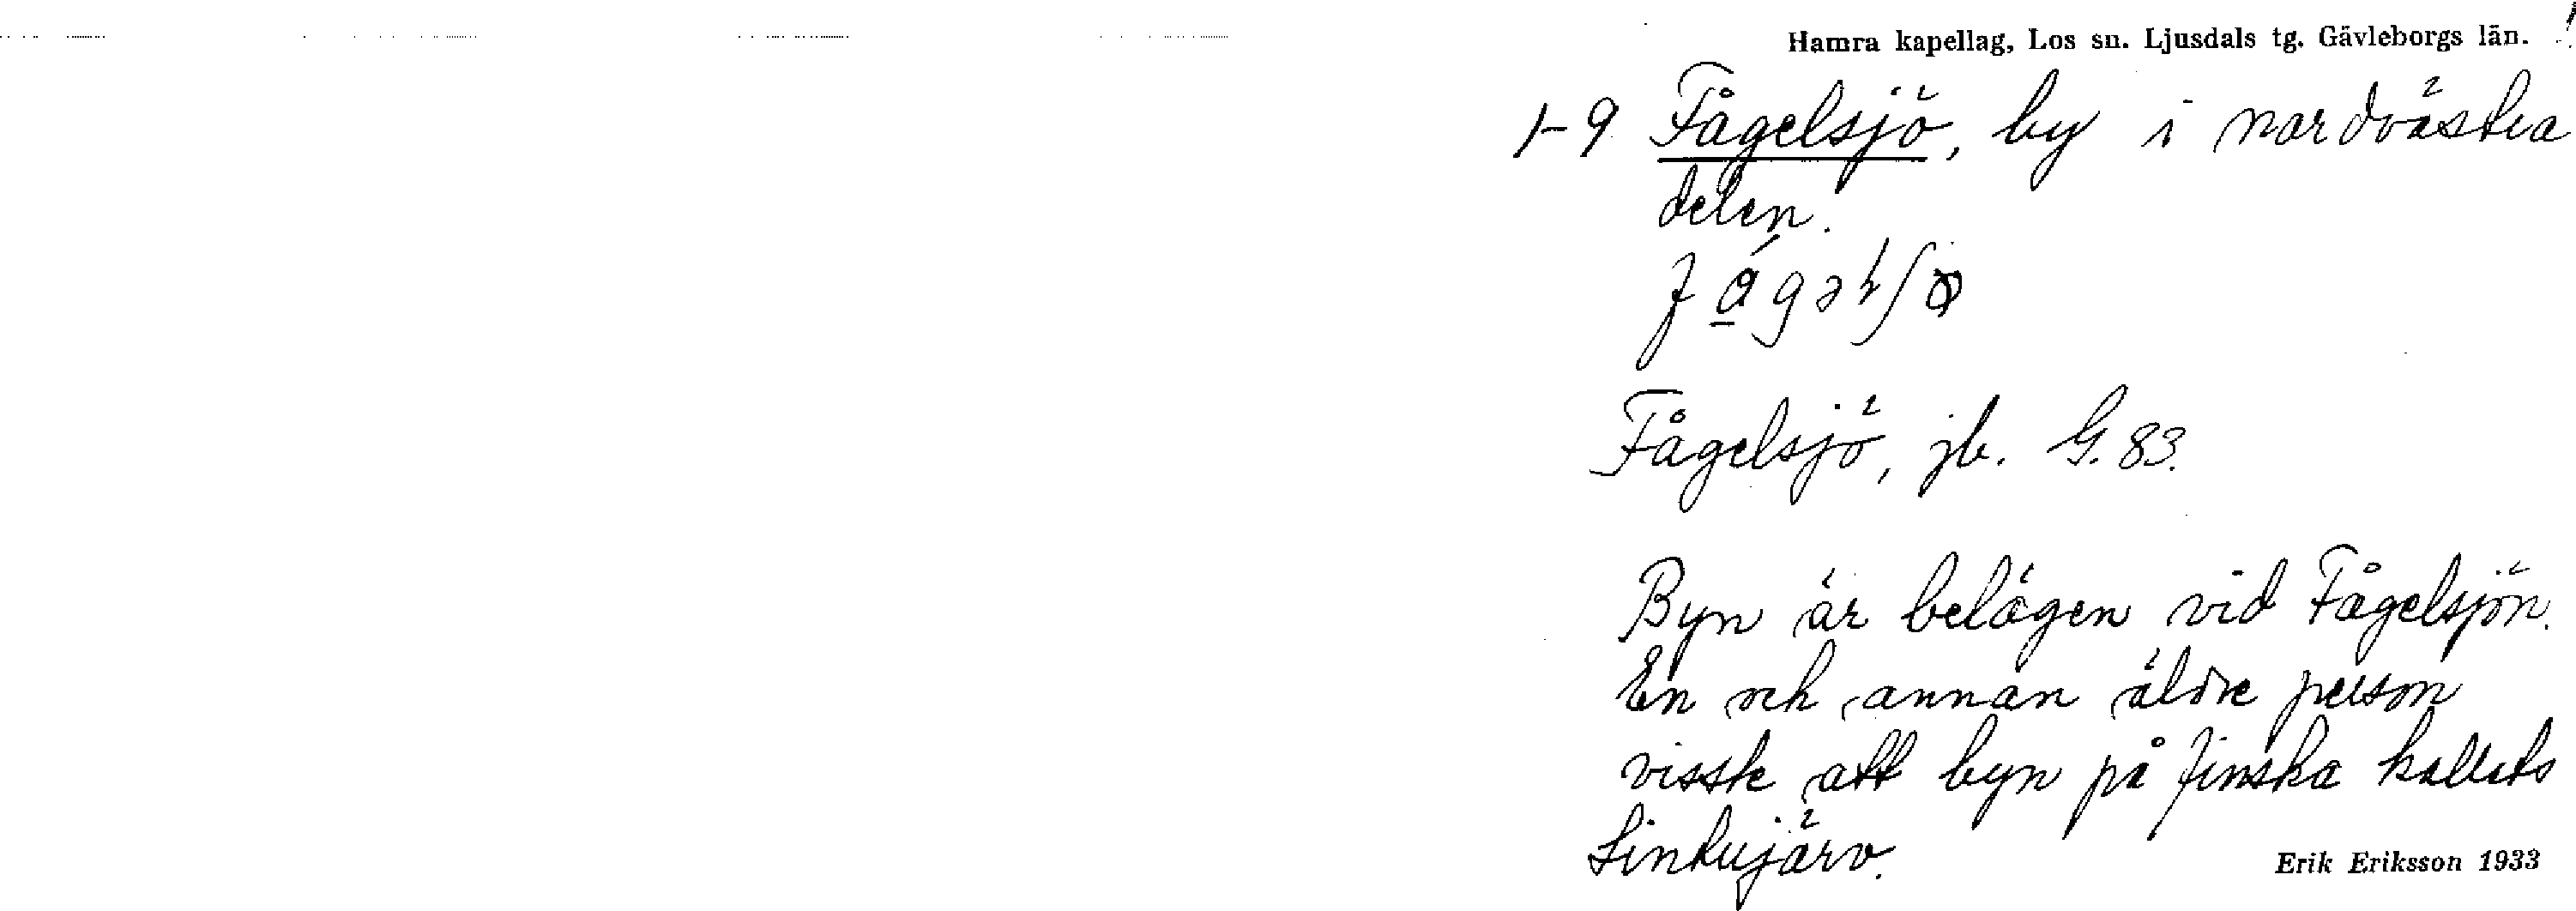 Hamra kapellag, Los sn. Ljusdals tg. Gävleborgs län.
1-9 Fågelsjö, by i nordvästra
delen.
Fågelsjö, jb. G. 83.
Byn är belägen vid Fågelsjön.
En och annan äldre person
visste att byn på finska kallats
Lintujärv.
Erik Eriksson 1933